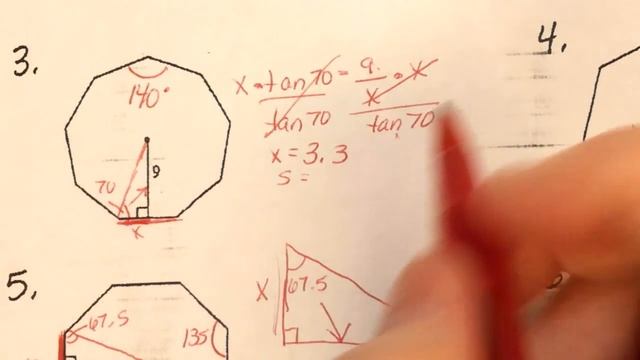 3.
140°
70
9
x
x · tan 70 = 9 · x
tan 70 x
tan 70
x = 3.3
s =
4.
5.
67.5
135
x
67.5